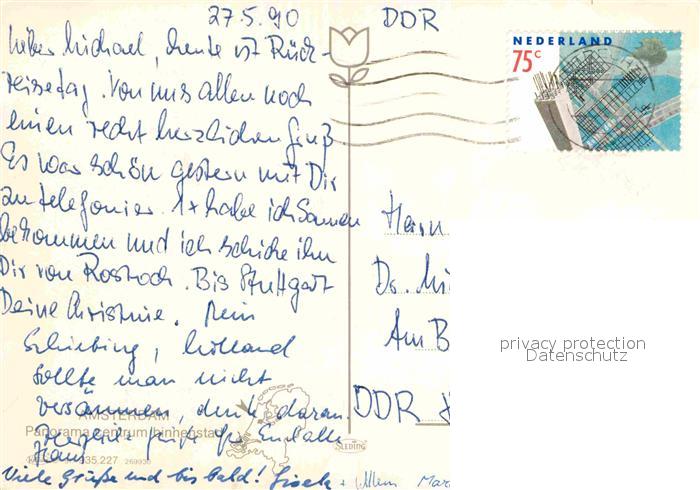 27.5.90
DDR
NEDERLAND
75c
lieber Michael, heute ist Rück-
reisetag. Von uns allen noch
einen recht herzlichen Gruß
Es war schön gestern mit Dir
zu telefonier. 1x habe ich Samen
bekommen und ich schicke ihn
Dir von Rostock. Bis Stuttgart
Deine Christine. Mein
, Holland
sollte man nicht
versäumen, denke daran.
Herzliche
Hans
Viele Grüße und bis bald! Gisela +
Herrn
Dr. Mi
Am B
DDR
AMSTERDAM
Panorama centrum/binnenstad
35.227 269930
SLEDING
privacy protection
Datenschutz